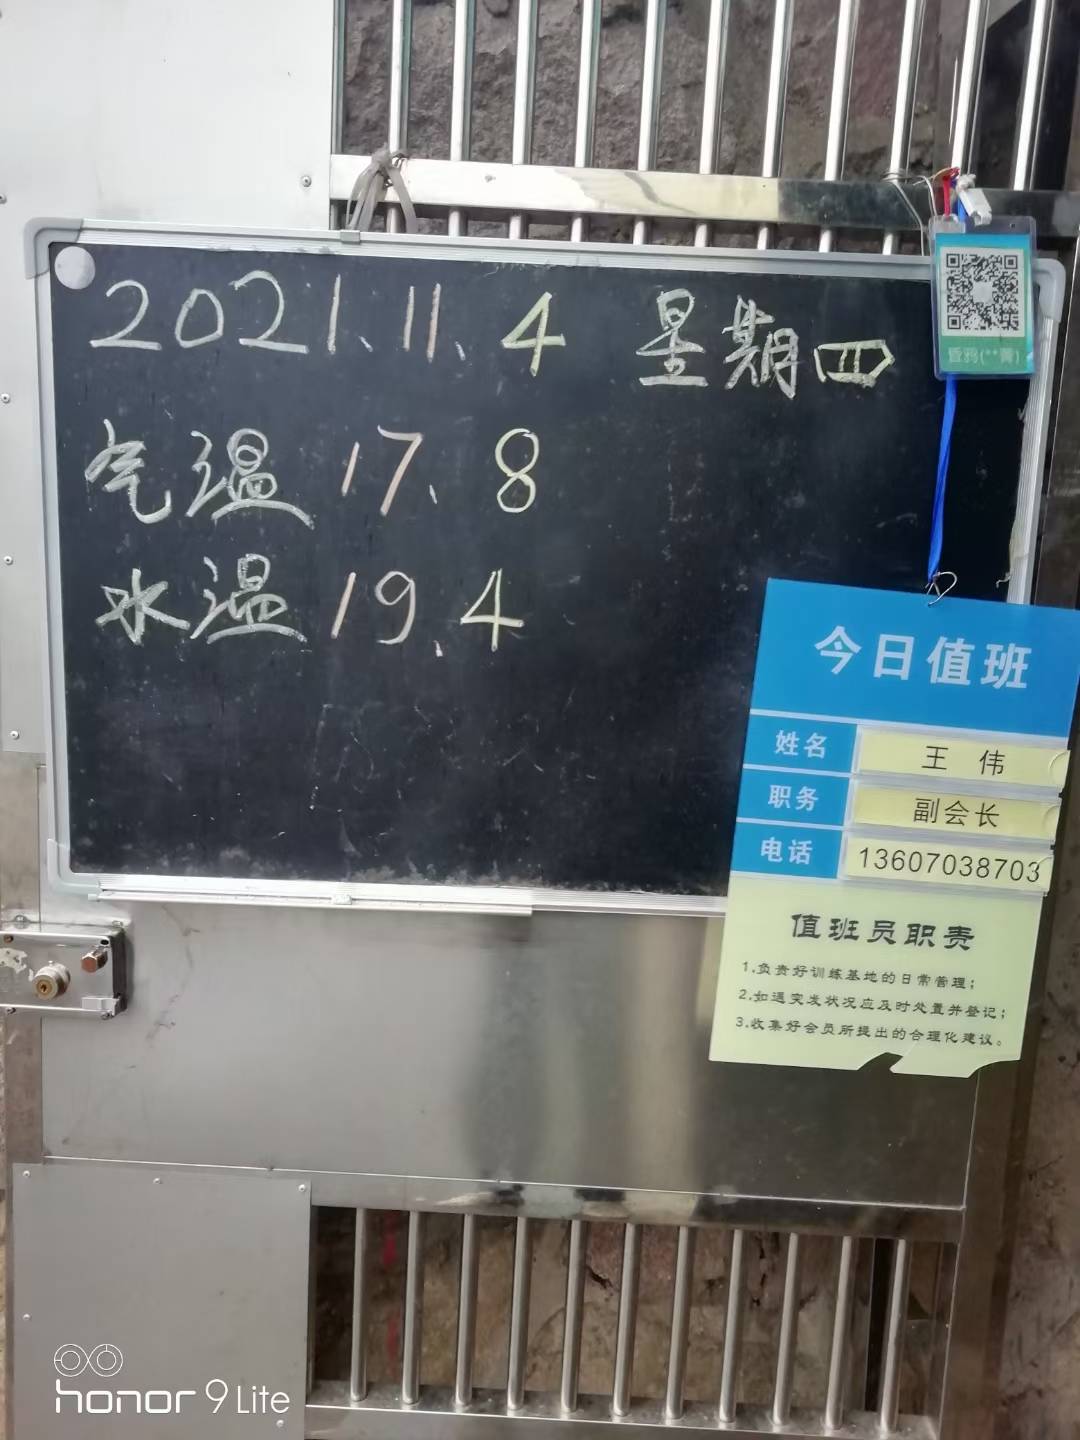 2021.11.4 星期四
气温 17.8
水温 19.4
昏鸦(**菁)
今日值班
姓名 王 伟
职务 副会长
电话 13607038703
值班员职责
1.负责好训练基地的日常管理;
2.如遇突发状况应及时处置并登记;
3.收集好会员所提出的合理化建议。
honor 9 Lite